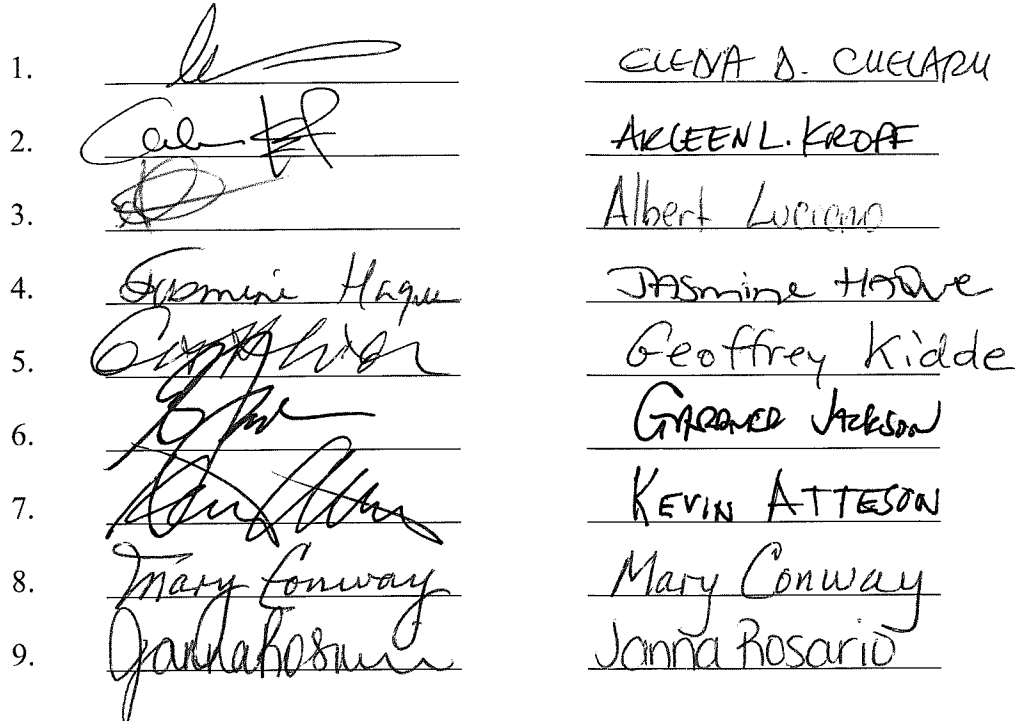 1. ELENA D. CHELARU
2. ARLEEN L. KROPF
3. Albert Luciano
4. Jasmine Haque JASmine HAQue
5. Geoffrey Kidde
6. GARDNER JACKSON
7. KEVIN ATTESON
8. Mary Conway Mary Conway
9. Janna Rosario